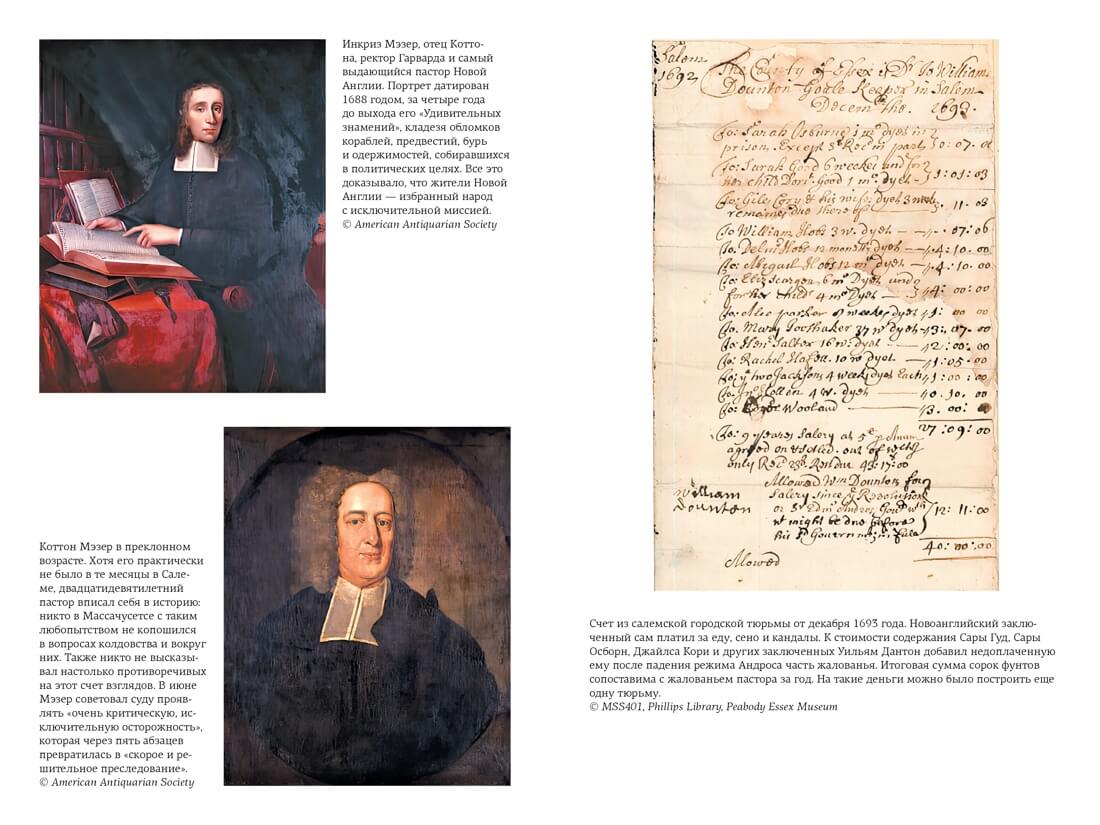 Инкриз Мэзер, отец Котто-
на, ректор Гарварда и самый
выдающийся пастор Новой
Англии. Портрет датирован
1688 годом, за четыре года
до выхода его «Удивительных
знамений», кладезя обломков
кораблей, предвестий, бурь
и одержимостей, собиравшихся
в политических целях. Все это
доказывало, что жители Новой
Англии — избранный народ
с исключительной миссией.
© American Antiquarian Society
Коттон Мэзер в преклонном
возрасте. Хотя его практически
не было в те месяцы в Сале-
ме, двадцатидевятилетний
пастор вписал себя в историю:
никто в Массачусетсе с таким
любопытством не копошился
в вопросах колдовства и вокруг
них. Также никто не высказы-
вал настолько противоречивых
на этот счет взглядов. В июне
Мэзер советовал суду прояв-
лять «очень критическую, ис-
ключительную осторожность»,
которая через пять абзацев
превратилась в «скорое и ре-
шительное преследование».
© American Antiquarian Society
Salem
1692
The County of Essex is Dr to William
Dounton Goale Keeper in Salem
1693
To: Sarah Osburne
prison. Except
To: Sarah Good 6 weekes and for
her child Good 1 mo dyet 1:01:03
To: Giles Cory & his wife dyet 3 weeks 11
To William Hobs 3 w. dyet 07:06
Hobs 12 months dyet 4:10:00
To: Abigail Hobs 12 m dyet 4:10:00
6 mo Dyet and
for her child 4 mo Dyet 4:00:00
parker 8 weekes dyet 1:00 00
To: Mary 37 w dyet 07:00
16 w: dyet 2:00:00
To: Rachel 10 w dyet 1:05:00
two Jacksons 4 weeks dyet Each 1:00:00
4 w. dyet 0.10.00
Wooland 3.00:00
27:09:00
To: 9 yeares Salery at 5
agreed on
only
Allowed Wm Dounton for
William
Dounton
Salery since Revolution
12:11:00
might be due before
Government
40:00:00
Allowed
Счет из салемской городской тюрьмы от декабря 1693 года. Новоанглийский заклю-
ченный сам платил за еду, сено и кандалы. К стоимости содержания Сары Гуд, Сары
Осборн, Джайлса Кори и других заключенных Уильям Дантон добавил недоплаченную
ему после падения режима Андроса часть жалованья. Итоговая сумма сорок фунтов
сопоставима с жалованьем пастора за год. На такие деньги можно было построить еще
одну тюрьму.
© MSS401, Phillips Library, Peabody Essex Museum